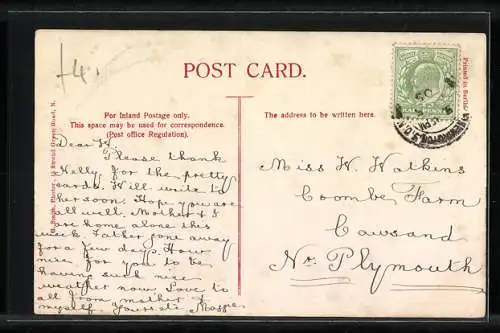 £4.
POST CARD.
For Inland Postage only.
This space may be used for correspondence.
(Post office Regulation).
The address to be written here.
Printed in Berlin
Dear W.
Please thank
Nelly for the pretty
cards. Will write to
her soon. Hope you are
all well. Mother & I
are home alone this
week. Father gone away
for a few days. How
nice for you to be
having such nice
weather now Love to
all from mother &
myself. yours etc
Miss W. Watkins
Coombe Farm
Cawsand
Nr. Plymouth